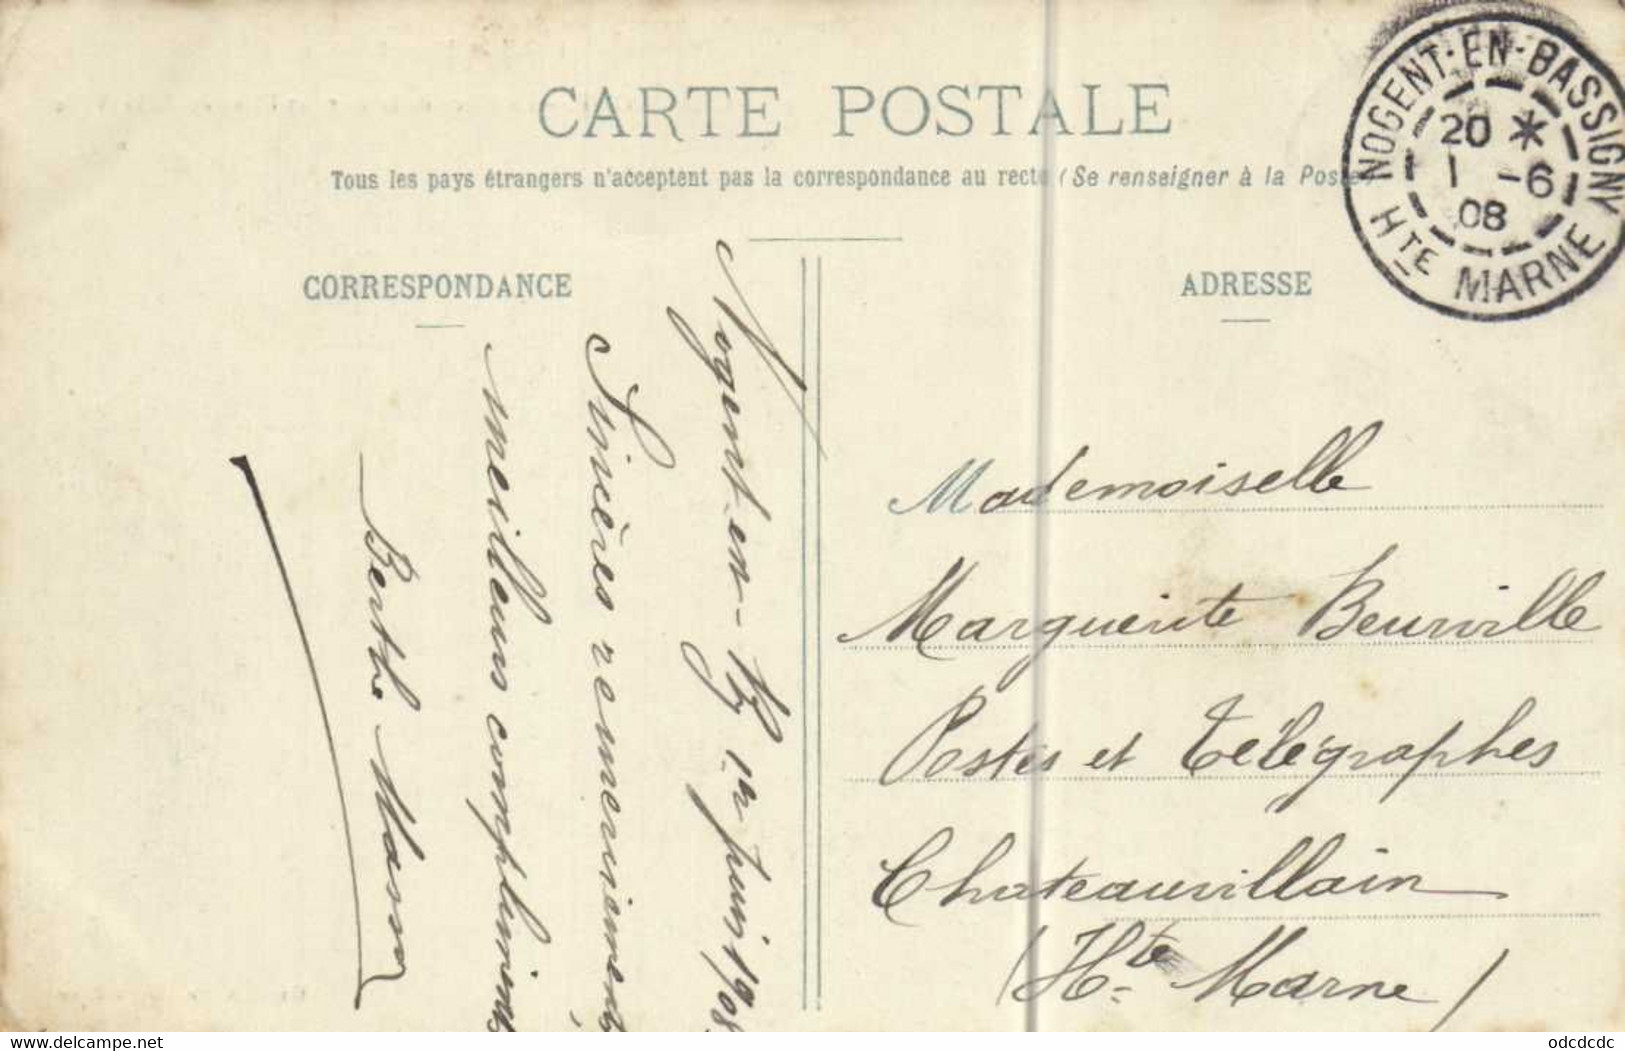 CARTE POSTALE
Tous les pays étrangers n'acceptent pas la correspondance au recto (Se renseigner à la Poste)
NOGENT-EN-BASSIGNY
20 *
1 -6
08
HTE MARNE
CORRESPONDANCE
Nogent-en-By 1er juin 1908
Sincères remerciements
meilleurs compliments
Berthe
ADRESSE
Mademoiselle
Marguerite Beurville
Postes et Télégraphes
Chateauvillain
(Hte Marne)
www.delcampe.net
odcdcdc